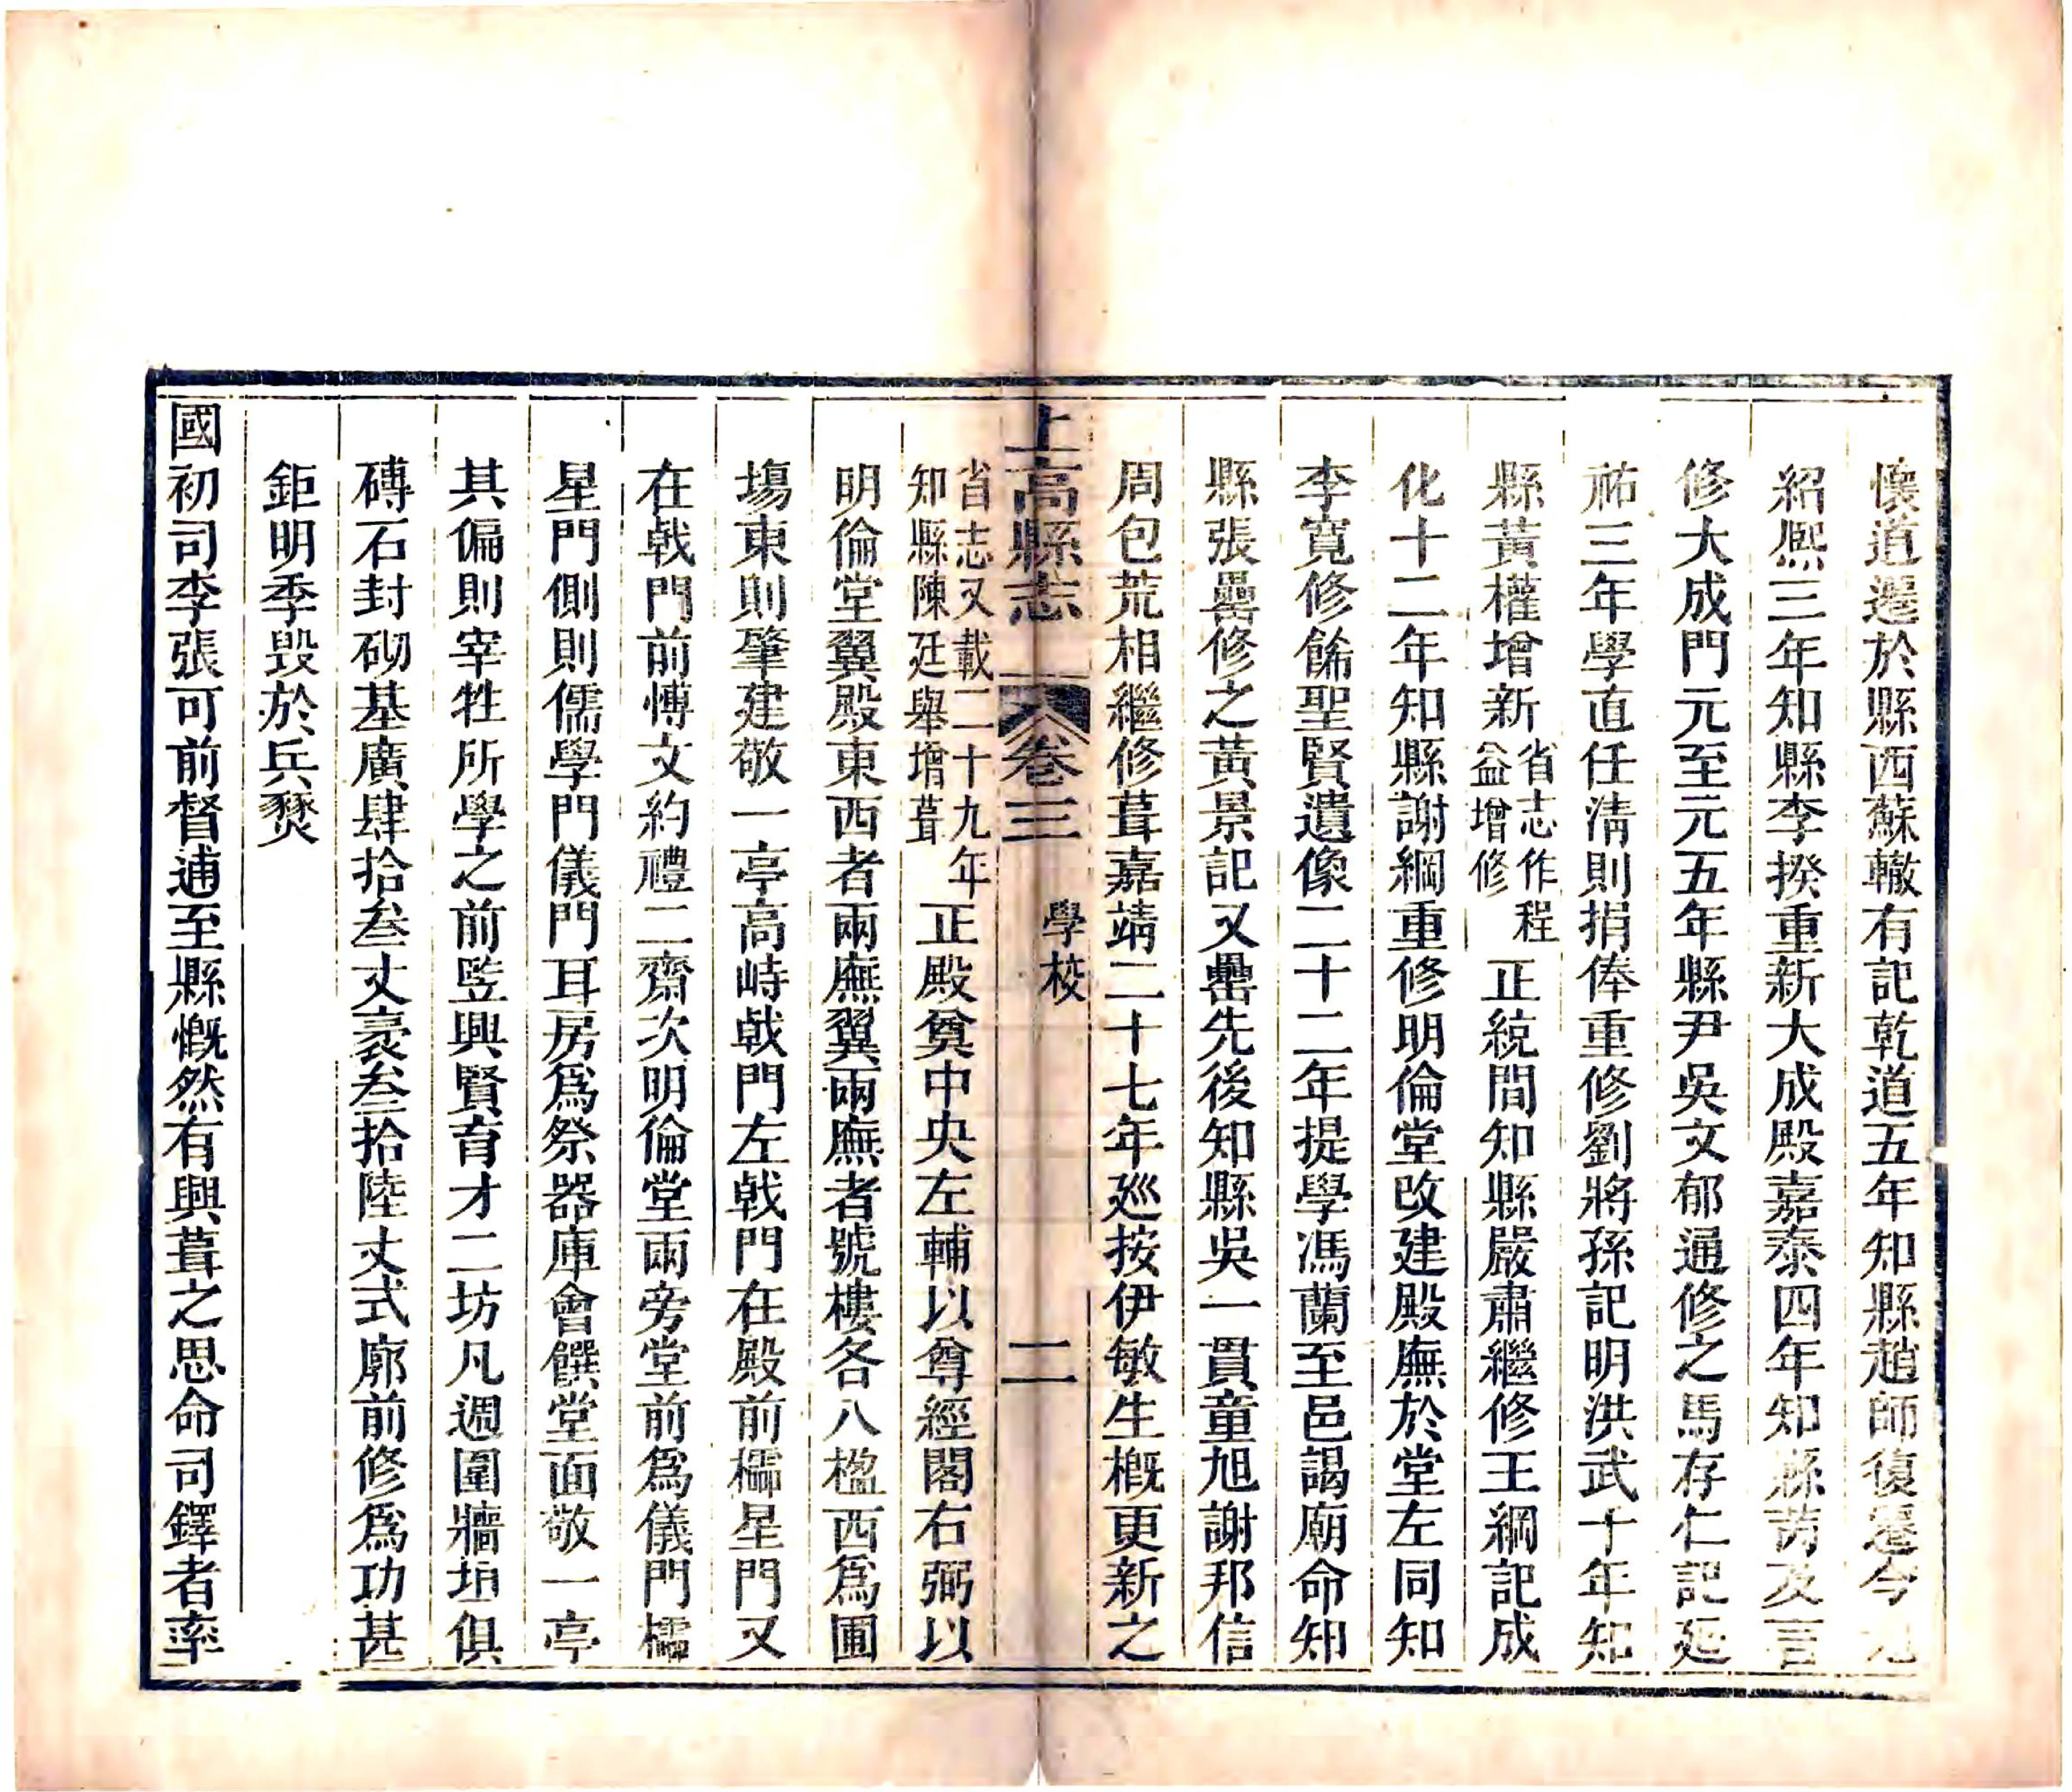 懷道遷於縣西蘇轍有記乾道五年知縣趙師復遷今
紹熙三年知縣李揆重新大成殿嘉泰四年知縣蒍及言
修大成門元至元五年縣尹吳文郁通修之馬存仁記延
祐三年學直任清則捐俸重修劉將孫記明洪武十年知
縣黃權增新省志作程益增修正統間知縣嚴肅繼修王綱記成
化十二年知縣謝綱重修明倫堂改建殿廡於堂左同知
李寬修餙聖賢遺像二十二年提學馮蘭至邑謁廟命知
縣張罍修之黃景記又罍先後知縣吳一貫童旭謝邦信
周包荒相繼修葺嘉靖二十七年廵按伊敏生概更新之
上高縣志 卷三 學校 二
省志又載二十九年知縣陳廷舉增葺正殿奠中央左輔以尊經閣右弼以
明倫堂翼殿東西者兩廡翼兩廡者號樓各八楹西爲圃
塲東則肇建敬一亭高峙戟門左戟門在殿前櫺星門又
在戟門前愽文約禮二齋次明倫堂兩旁堂前爲儀門櫺
星門側則儒學門儀門耳房爲祭器庫會饌堂面敬一亭
其偏則宰牲所學之前竪興賢育才二坊凡週圍牆垣俱
磚石封砌基廣肆拾叁丈袤叁拾陸丈式廓前修爲功甚
鉅明季毀於兵燹
國初司李張可前督逋至縣慨然有興葺之思命司鐸者率